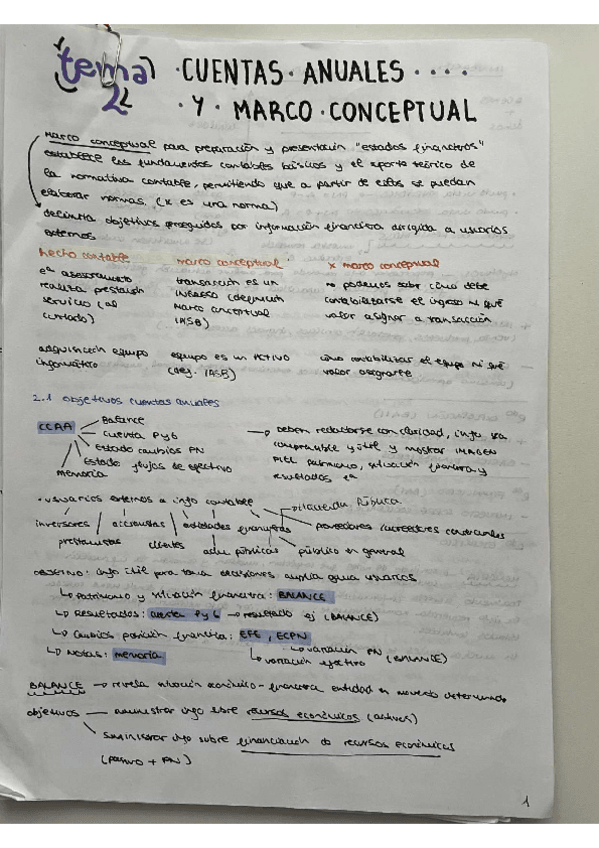 tema 2 · CUENTAS · ANUALES · · · ·
· Y · MARCO · CONCEPTUAL
Marco conceptual para preparación y presentación "estados financieros"
establece los fundamentos contables básicos y el aporte teórico de
la normativa contable, permitiendo que a partir de ellos se puedan
elaborar normas. (x es una norma)
delimita objetivos perseguidos por información financiera dirigida a usuarios
externos
hecho contable marco conceptual x marco conceptual
eª asesoramiento transacción es un no podemos saber cómo debe
realiza prestación INGRESO (definición contabilizarse el ingreso ni qué
servicio (al marco conceptual valor asignar a transacción
contado) IASB)
adquisición equipo equipo es un ACTIVO cómo contabilizar el equipo ni qué
informático (def. IASB) valor asignarle
2.1 objetivos cuentas anuales
CCAA Balance
Cuenta PyG
Estado cambios PN
Estado flujos de efectivo
memoria
→ Deben redactarse con claridad, info sea
comprensible y útil y mostrar IMAGEN
FIEL patrimonio, situación financiera y
resultados eª
· usuarios externos a info contable
inversores accionistas entidades financieras Hacienda Pública proveedores/acreedores comerciales
prestamistas clientes adm públicas público en general
OBJETIVO: info útil para toma decisiones amplia gama usuarios
↳ Patrimonio y situación financiera: BALANCE
↳ Resultados: cuenta PyG → resultado ej (BALANCE)
↳ Cambios posición financiera: EFE, ECPN
↳ variación PN
↳ variación efectivo (BALANCE)
↳ Notas: memoria
BALANCE → revela situación económico-financiera entidad en momento determinado
objetivos — suministrar info sobre recursos económicos (activos)
suministrar info sobre financiación de recursos económicos
(pasivo + PN)
1